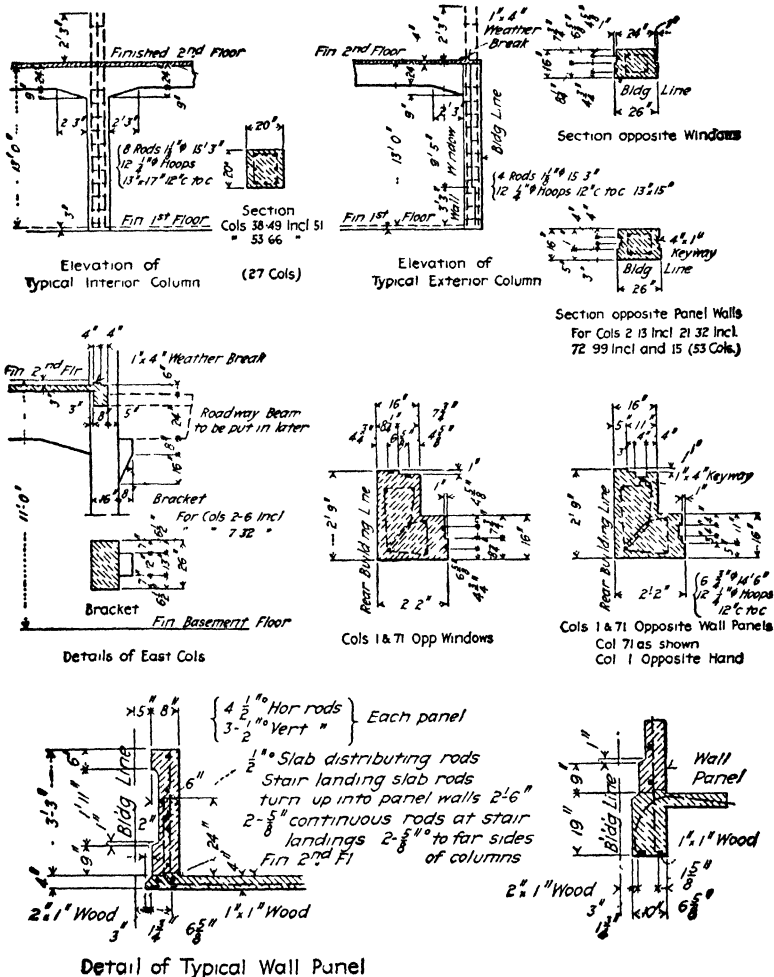 2'3"
Finished 2nd Floor
24"
24"
9"
9"
2'3"
2'3"
13'0"
8 Rods 1¼"φ 15'3"
12 ¼"φ Hoops
13"x17" 12"c to c
3"
Fin 1st Floor
Elevation of
Typical Interior Column
20"
20"
Section
Cols 38-49 Incl 51
" 53 66 "
(27 Cols)
2'3"
4"
1"x4"
Weather
Break
Fin 2nd Floor
24"
9"
2'3"
13'0"
9'5"
Window
3'3"
Wall
Bldg Line
4 Rods 1¼"φ 15 3"
12 ¼"φ Hoops 12"c to c 13"x15"
Fin 1st Floor
Elevation of
Typical Exterior Column
1"
24"
1"
16"
Bldg Line
26"
Section opposite Windows
4"
4"
16"
1"
5"
3"
4"x1"
Keyway
Bldg Line
26"
Section opposite Panel Walls
For Cols 2 13 Incl 21 32 Incl.
72 99 Incl and 15 (53 Cols.)
4"
4"
1"x4" Weather Break
Fin 2nd Flr
6"
3"
3"
8"
5"
24"
Roadway Beam
to be put in later
8"
16"
16"
8"
11'-0"
Bracket
For Cols 2-6 Incl
" 7 32 "
7"
6½"
2"
13"
26"
7"
6½"
Bracket
Fin Basement Floor
Details of East Cols
16"
1"
7¾"
4¾"
4⅝"
1"
1"
2'9"
Rear Building Line
7¾"
16"
2 2"
6⅝"
4¾"
Cols 1 & 71 Opp Windows
16"
5"
11"
3"
4"
4"
1"
1"
1"x4" Keyway
1"
2'9"
Rear Building Line
11"
16"
5"
2'2"
6 ¾"φ 14'6"
12 ¼"φ Hoops
12"c to c
Cols 1 & 71 Opposite Wall Panels
Col 71 as shown
Col 1 Opposite Hand
5"
8"
4 ½"° Hor rods
3-½"° Vert "
Each panel
Bldg Line
6"
3'-3"
1'11"
1"
2"
9"
4"
6"
24"
4"
½"° Slab distributing rods
Stair landing slab rods
turn up into panel walls 2'-6"
2-⅝" continuous rods at stair
landings 2-⅝"° to far sides
of columns
Fin 2nd Fl
2"x1" Wood
1"x1" Wood
3"
1¾"
6⅝"
Detail of Typical Wall Panel
1"
9"
19"
Bldg Line
Wall
Panel
1"x1" Wood
1⅝"
2"x1" Wood
3"
1¾"
10"
6⅝"